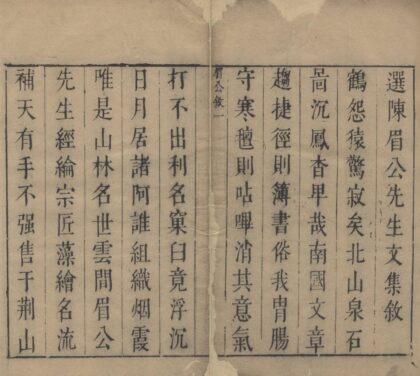 選陳眉公先生文集敘
鶴怨猿驚寂矣北山泉石
啚沉鳳杳卑哉南國文章
趨捷徑則簿書俗我胃腸
守寒氊則呫嗶消其意氣
眉公敘一
打不出利名窠臼竟浮沉
日月居諸阿誰組織烟霞
唯是山林名世雲間眉公
先生經綸宗匠藻繪名流
補天有手不强售于荆山